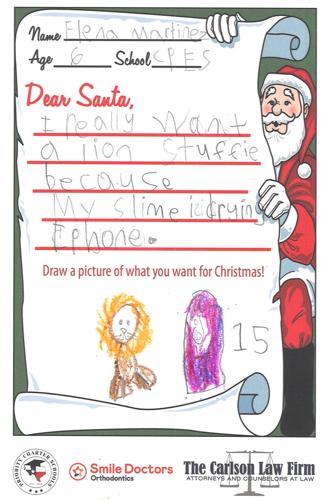 Name Elena Martinez
Age 6 School CPES
Dear Santa,
I really want
a lion Stuffie
because
My slime is drying
Ephone.
Draw a picture of what you want for Christmas!
15
PRIORITY CHARTER SCHOOLS
Smile Doctors
Orthodontics
The Carlson Law Firm
ATTORNEYS AND COUNSELORS AT LAW